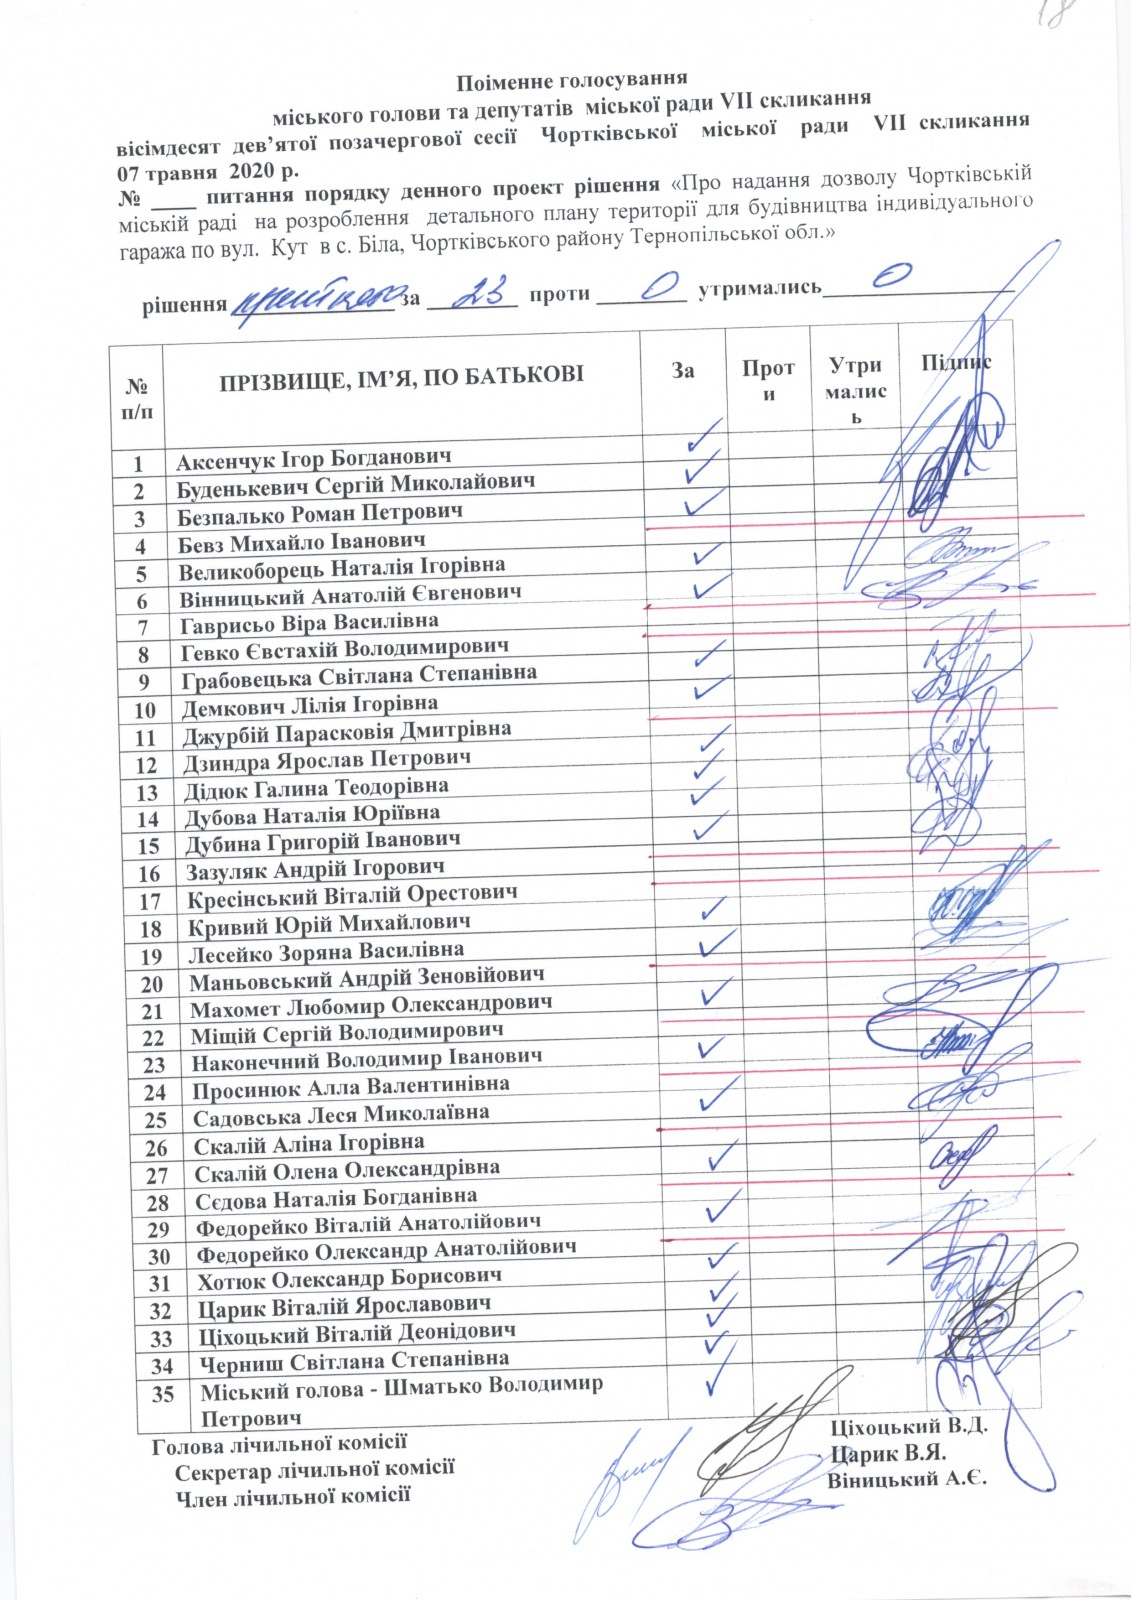 18
Поіменне голосування
міського голови та депутатів міської ради VII скликання
вісімдесят дев’ятої позачергової сесії Чортківської міської ради VII скликання
07 травня 2020 р.
№ ____ питання порядку денного проект рішення «Про надання дозволу Чортківській
міській раді на розроблення детального плану території для будівництва індивідуального
гаража по вул. Кут в с. Біла, Чортківського району Тернопільської обл.»
рішення прийнято за 23 проти 0 утримались 0
№ п/п ПРІЗВИЩЕ, ІМ’Я, ПО БАТЬКОВІ За Прот и Утри малис ь Підпис
1 Аксенчук Ігор Богданович ✓
2 Буденькевич Сергій Миколайович ✓
3 Безпалько Роман Петрович ✓
4 Бевз Михайло Іванович
5 Великоборець Наталія Ігорівна ✓
6 Вінницький Анатолій Євгенович ✓
7 Гаврисьо Віра Василівна
8 Гевко Євстахій Володимирович
9 Грабовецька Світлана Степанівна ✓
10 Демкович Лілія Ігорівна ✓
11 Джурбій Парасковія Дмитрівна
12 Дзиндра Ярослав Петрович ✓
13 Дідюк Галина Теодорівна ✓
14 Дубова Наталія Юріївна ✓
15 Дубина Григорій Іванович ✓
16 Зазуляк Андрій Ігорович
17 Кресінський Віталій Орестович
18 Кривий Юрій Михайлович ✓
19 Лесейко Зоряна Василівна ✓
20 Маньовський Андрій Зеновійович
21 Махомет Любомир Олександрович ✓
22 Міщій Сергій Володимирович
23 Наконечний Володимир Іванович ✓
24 Просинюк Алла Валентинівна
25 Садовська Леся Миколаївна ✓
26 Скалій Аліна Ігорівна
27 Скалій Олена Олександрівна ✓
28 Сєдова Наталія Богданівна
29 Федорейко Віталій Анатолійович ✓
30 Федорейко Олександр Анатолійович
31 Хотюк Олександр Борисович ✓
32 Царик Віталій Ярославович ✓
33 Ціхоцький Віталій Деонідович ✓
34 Черниш Світлана Степанівна ✓
35 Міський голова - Шматько Володимир ✓
Петрович
Голова лічильної комісії Ціхоцький В.Д.
Секретар лічильної комісії Царик В.Я.
Член лічильної комісії Віницький А.Є.